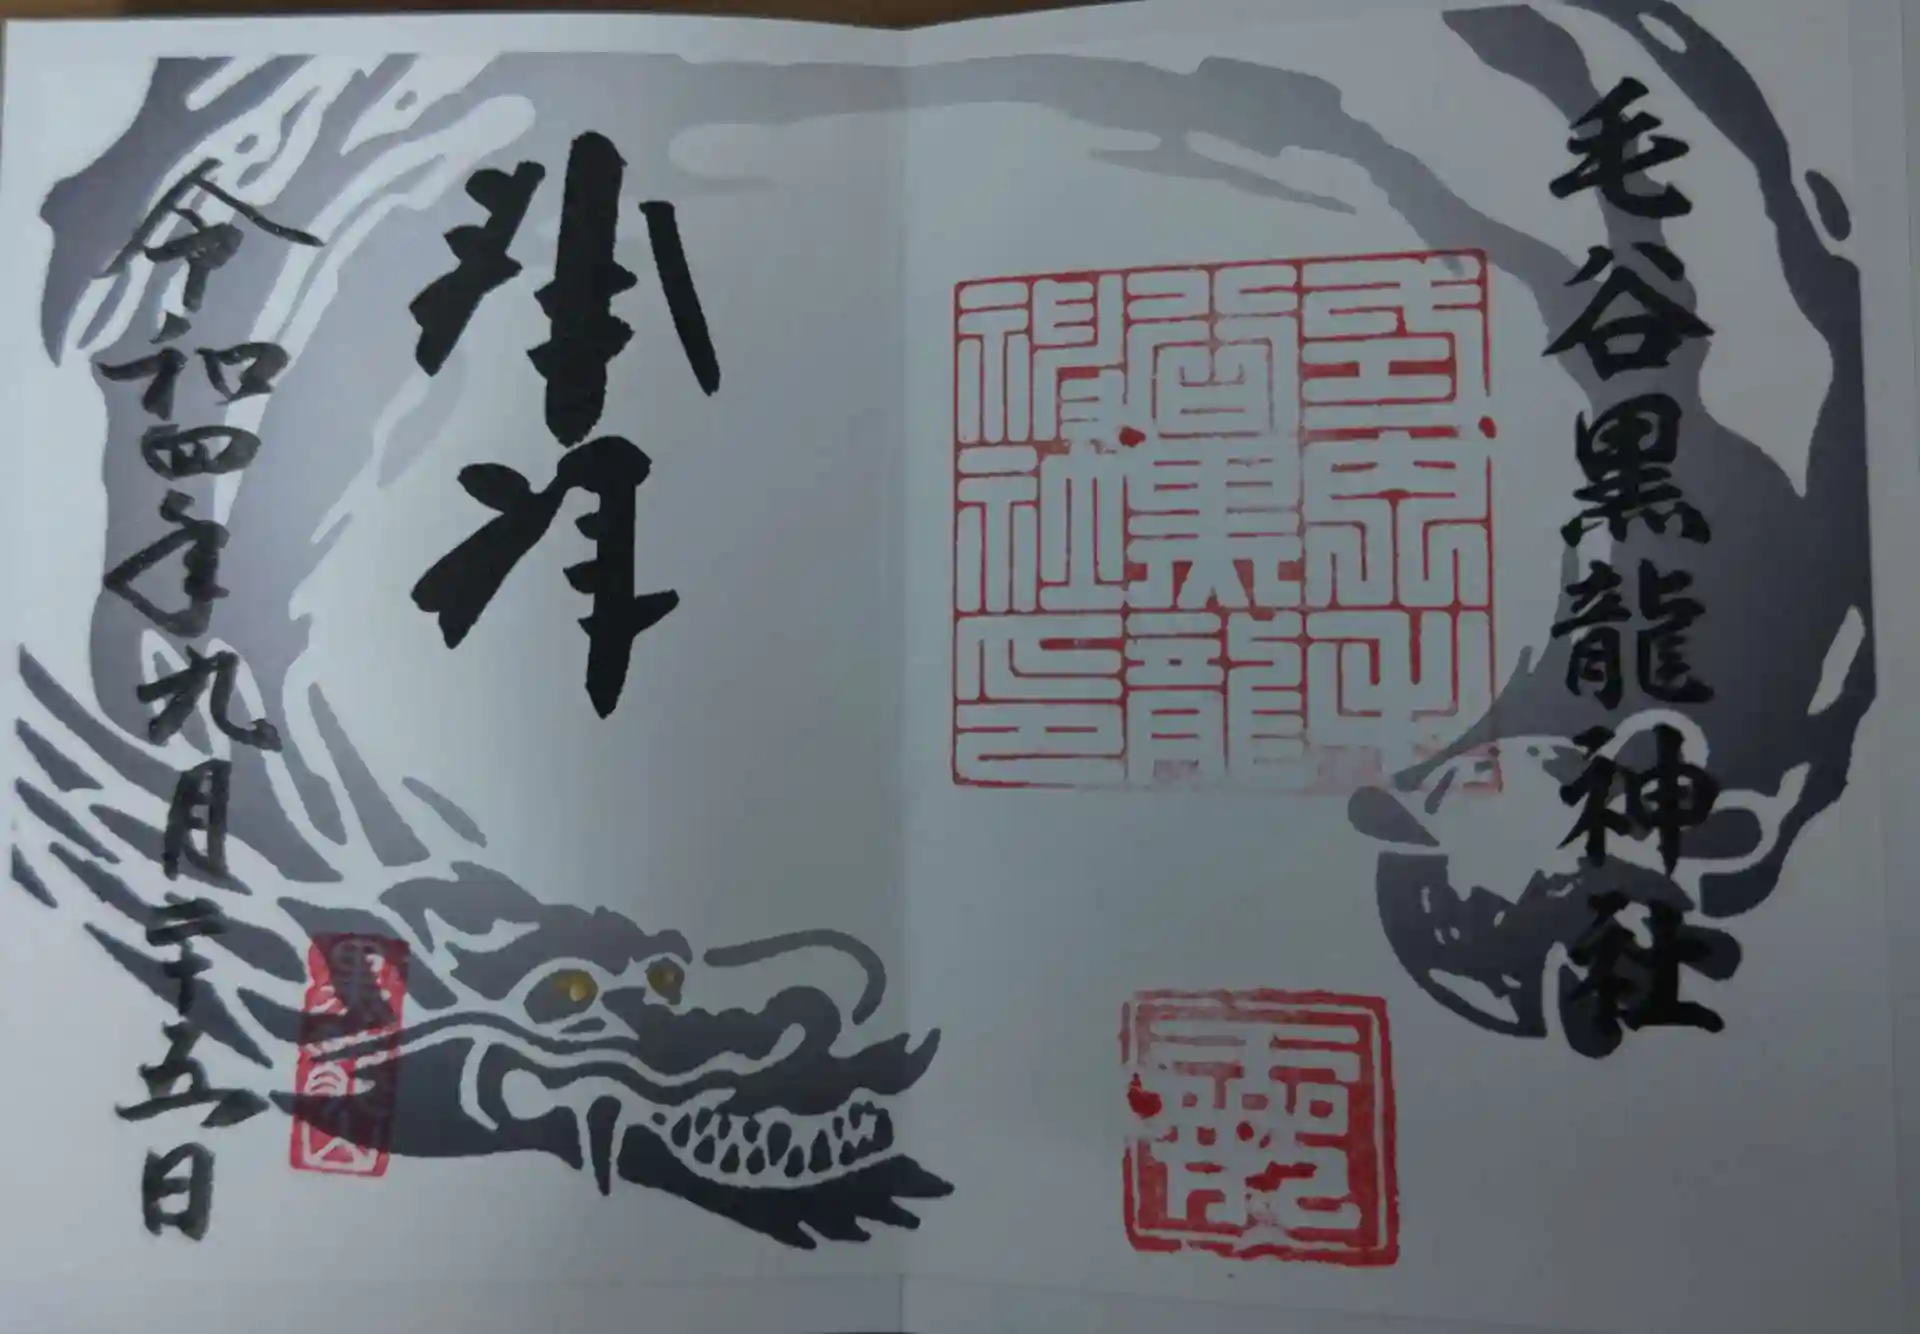 毛谷黒龍神社
谷黒龍
神社印
龗
奉拝
令和四年九月二十五日